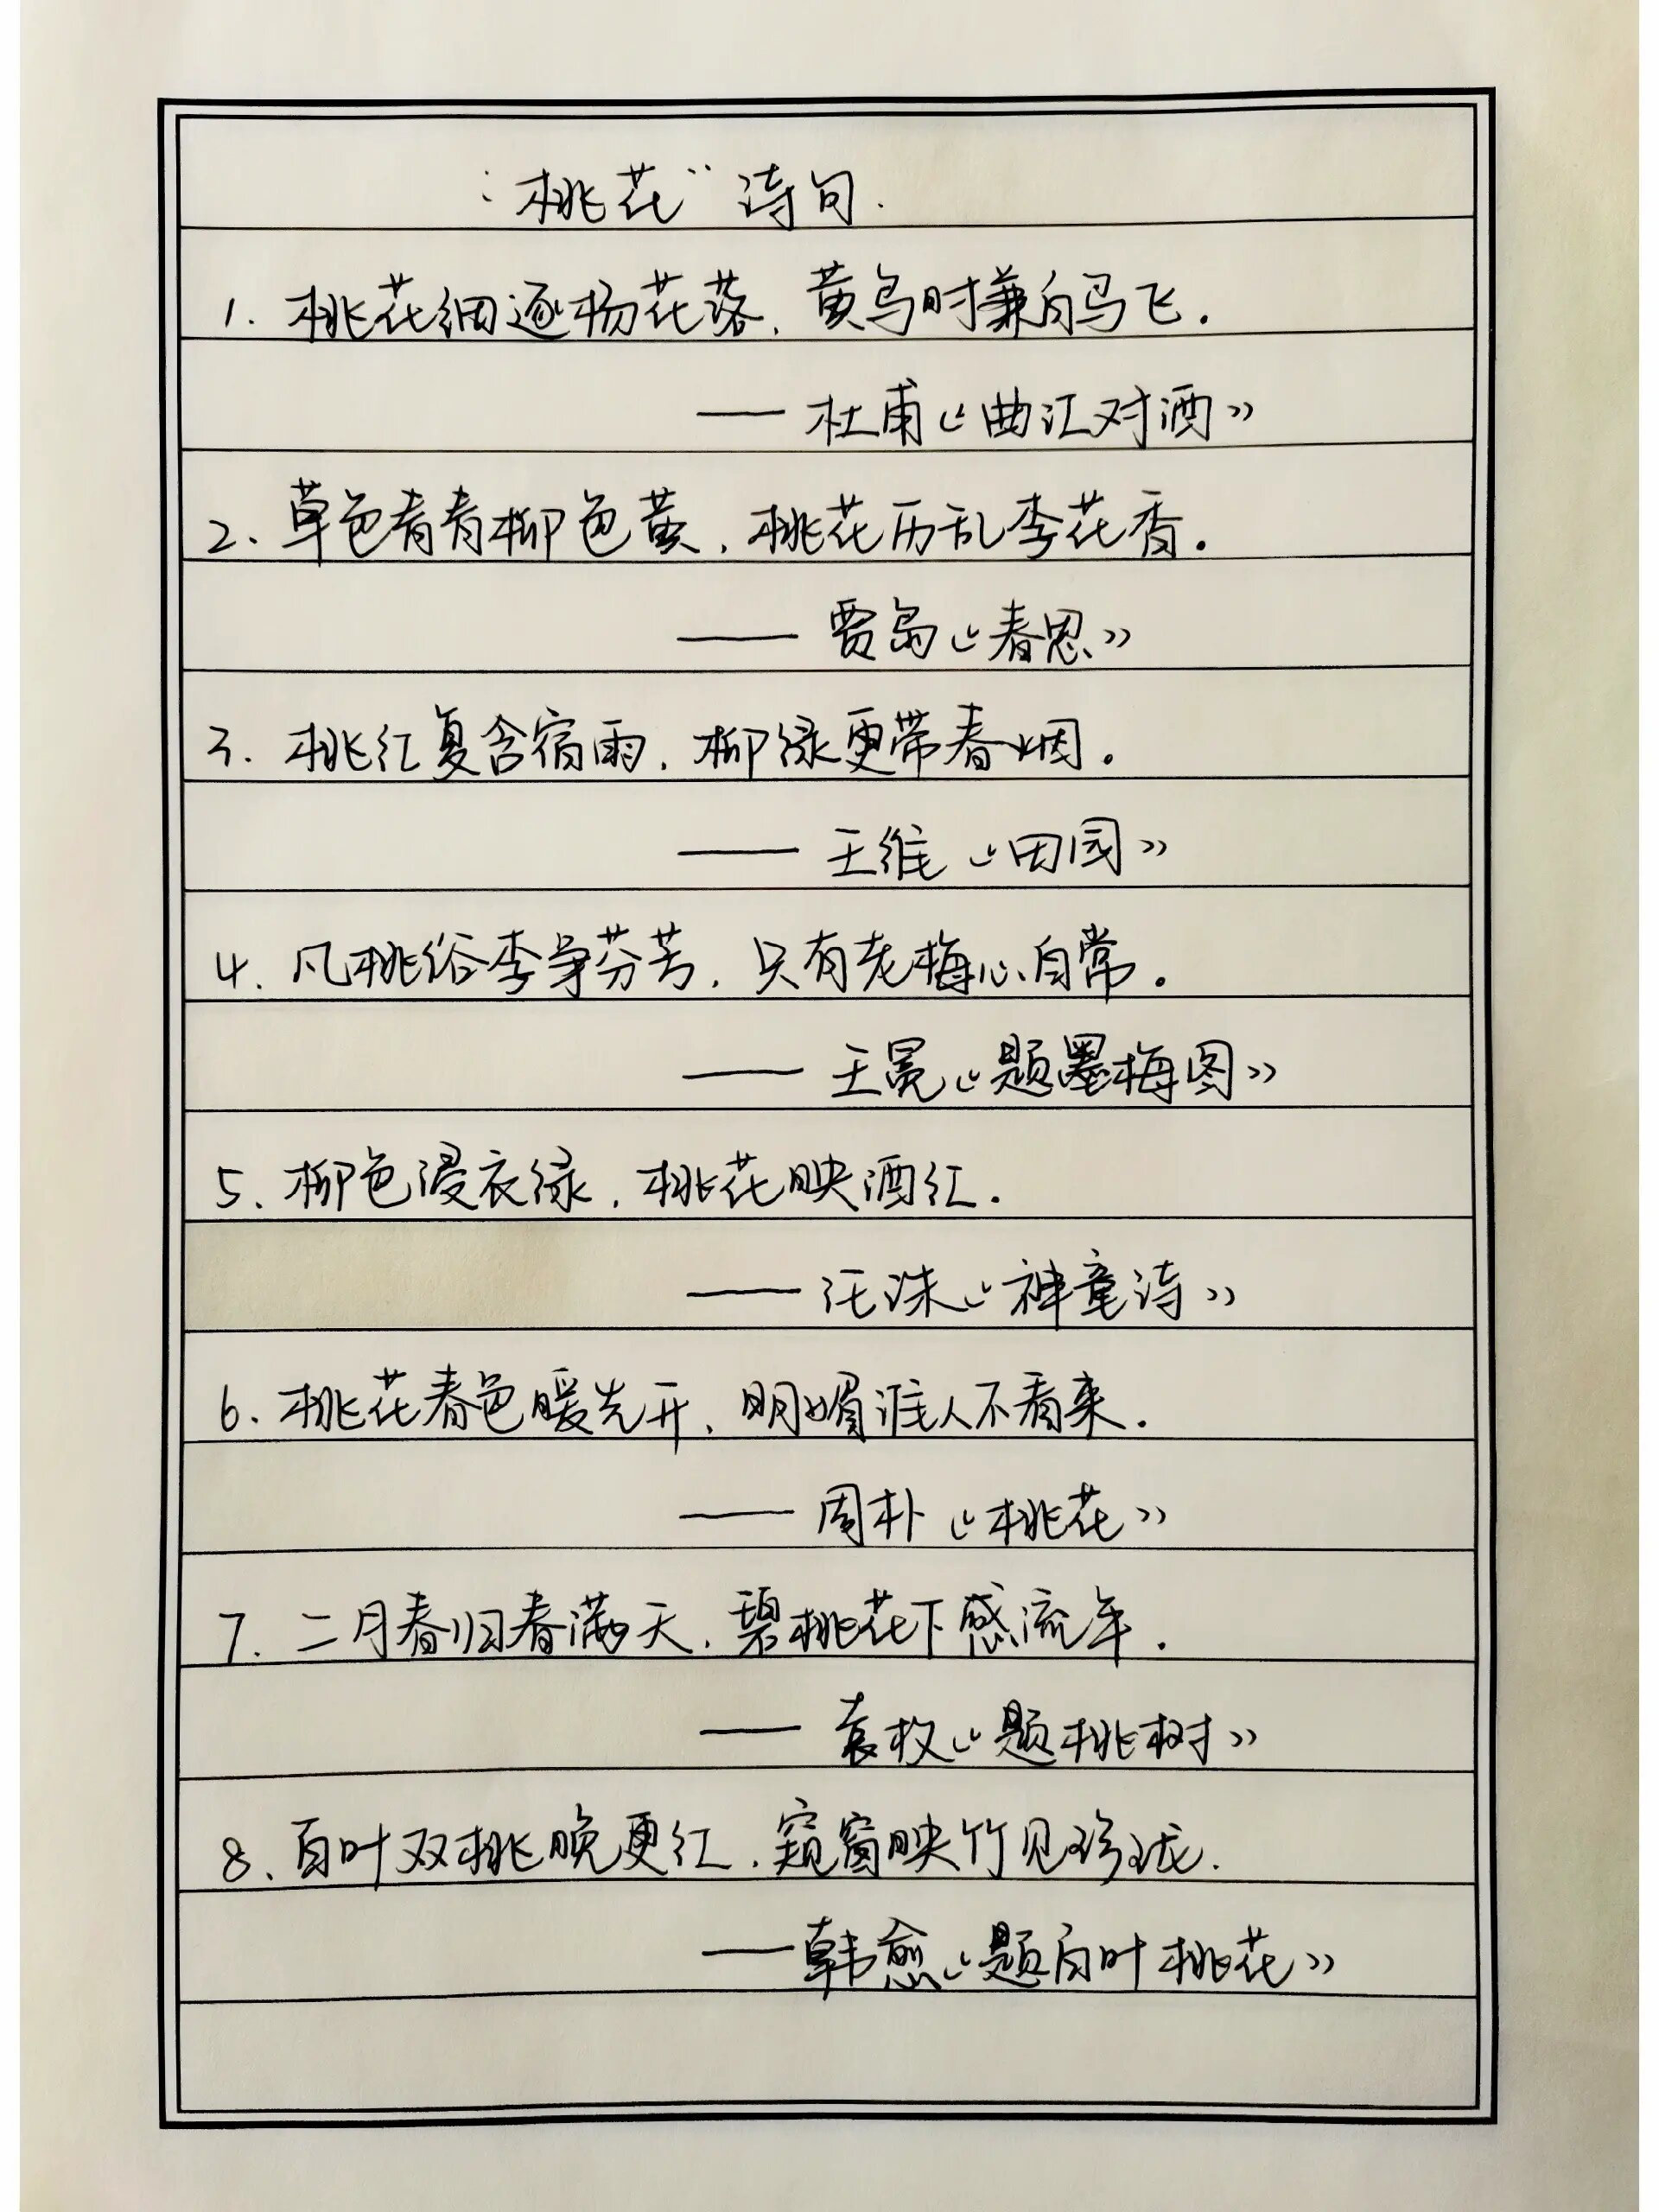 “桃花”诗句.
1. 桃花细逐杨花落，黄鸟时兼白鸟飞.
——杜甫《曲江对酒》
2、草色青青柳色黄，桃花历乱李花香.
——贾岛《春思》
3. 桃红复含宿雨，柳绿更带春烟.
——王维《田园》
4. 凡桃俗李争芬芳，只有老梅心自常.
——王冕《题墨梅图》
5、柳色浸衣绿，桃花映酒红.
——汪洙《神童诗》
6. 桃花春色暖先开，明媚谁人不看来.
——周朴《桃花》
7. 二月春归春满天，碧桃花下感流年.
——袁枚《题桃树》
8、百叶双桃晚更红，窥窗映竹见珍珑.
——韩愈《题百叶桃花》